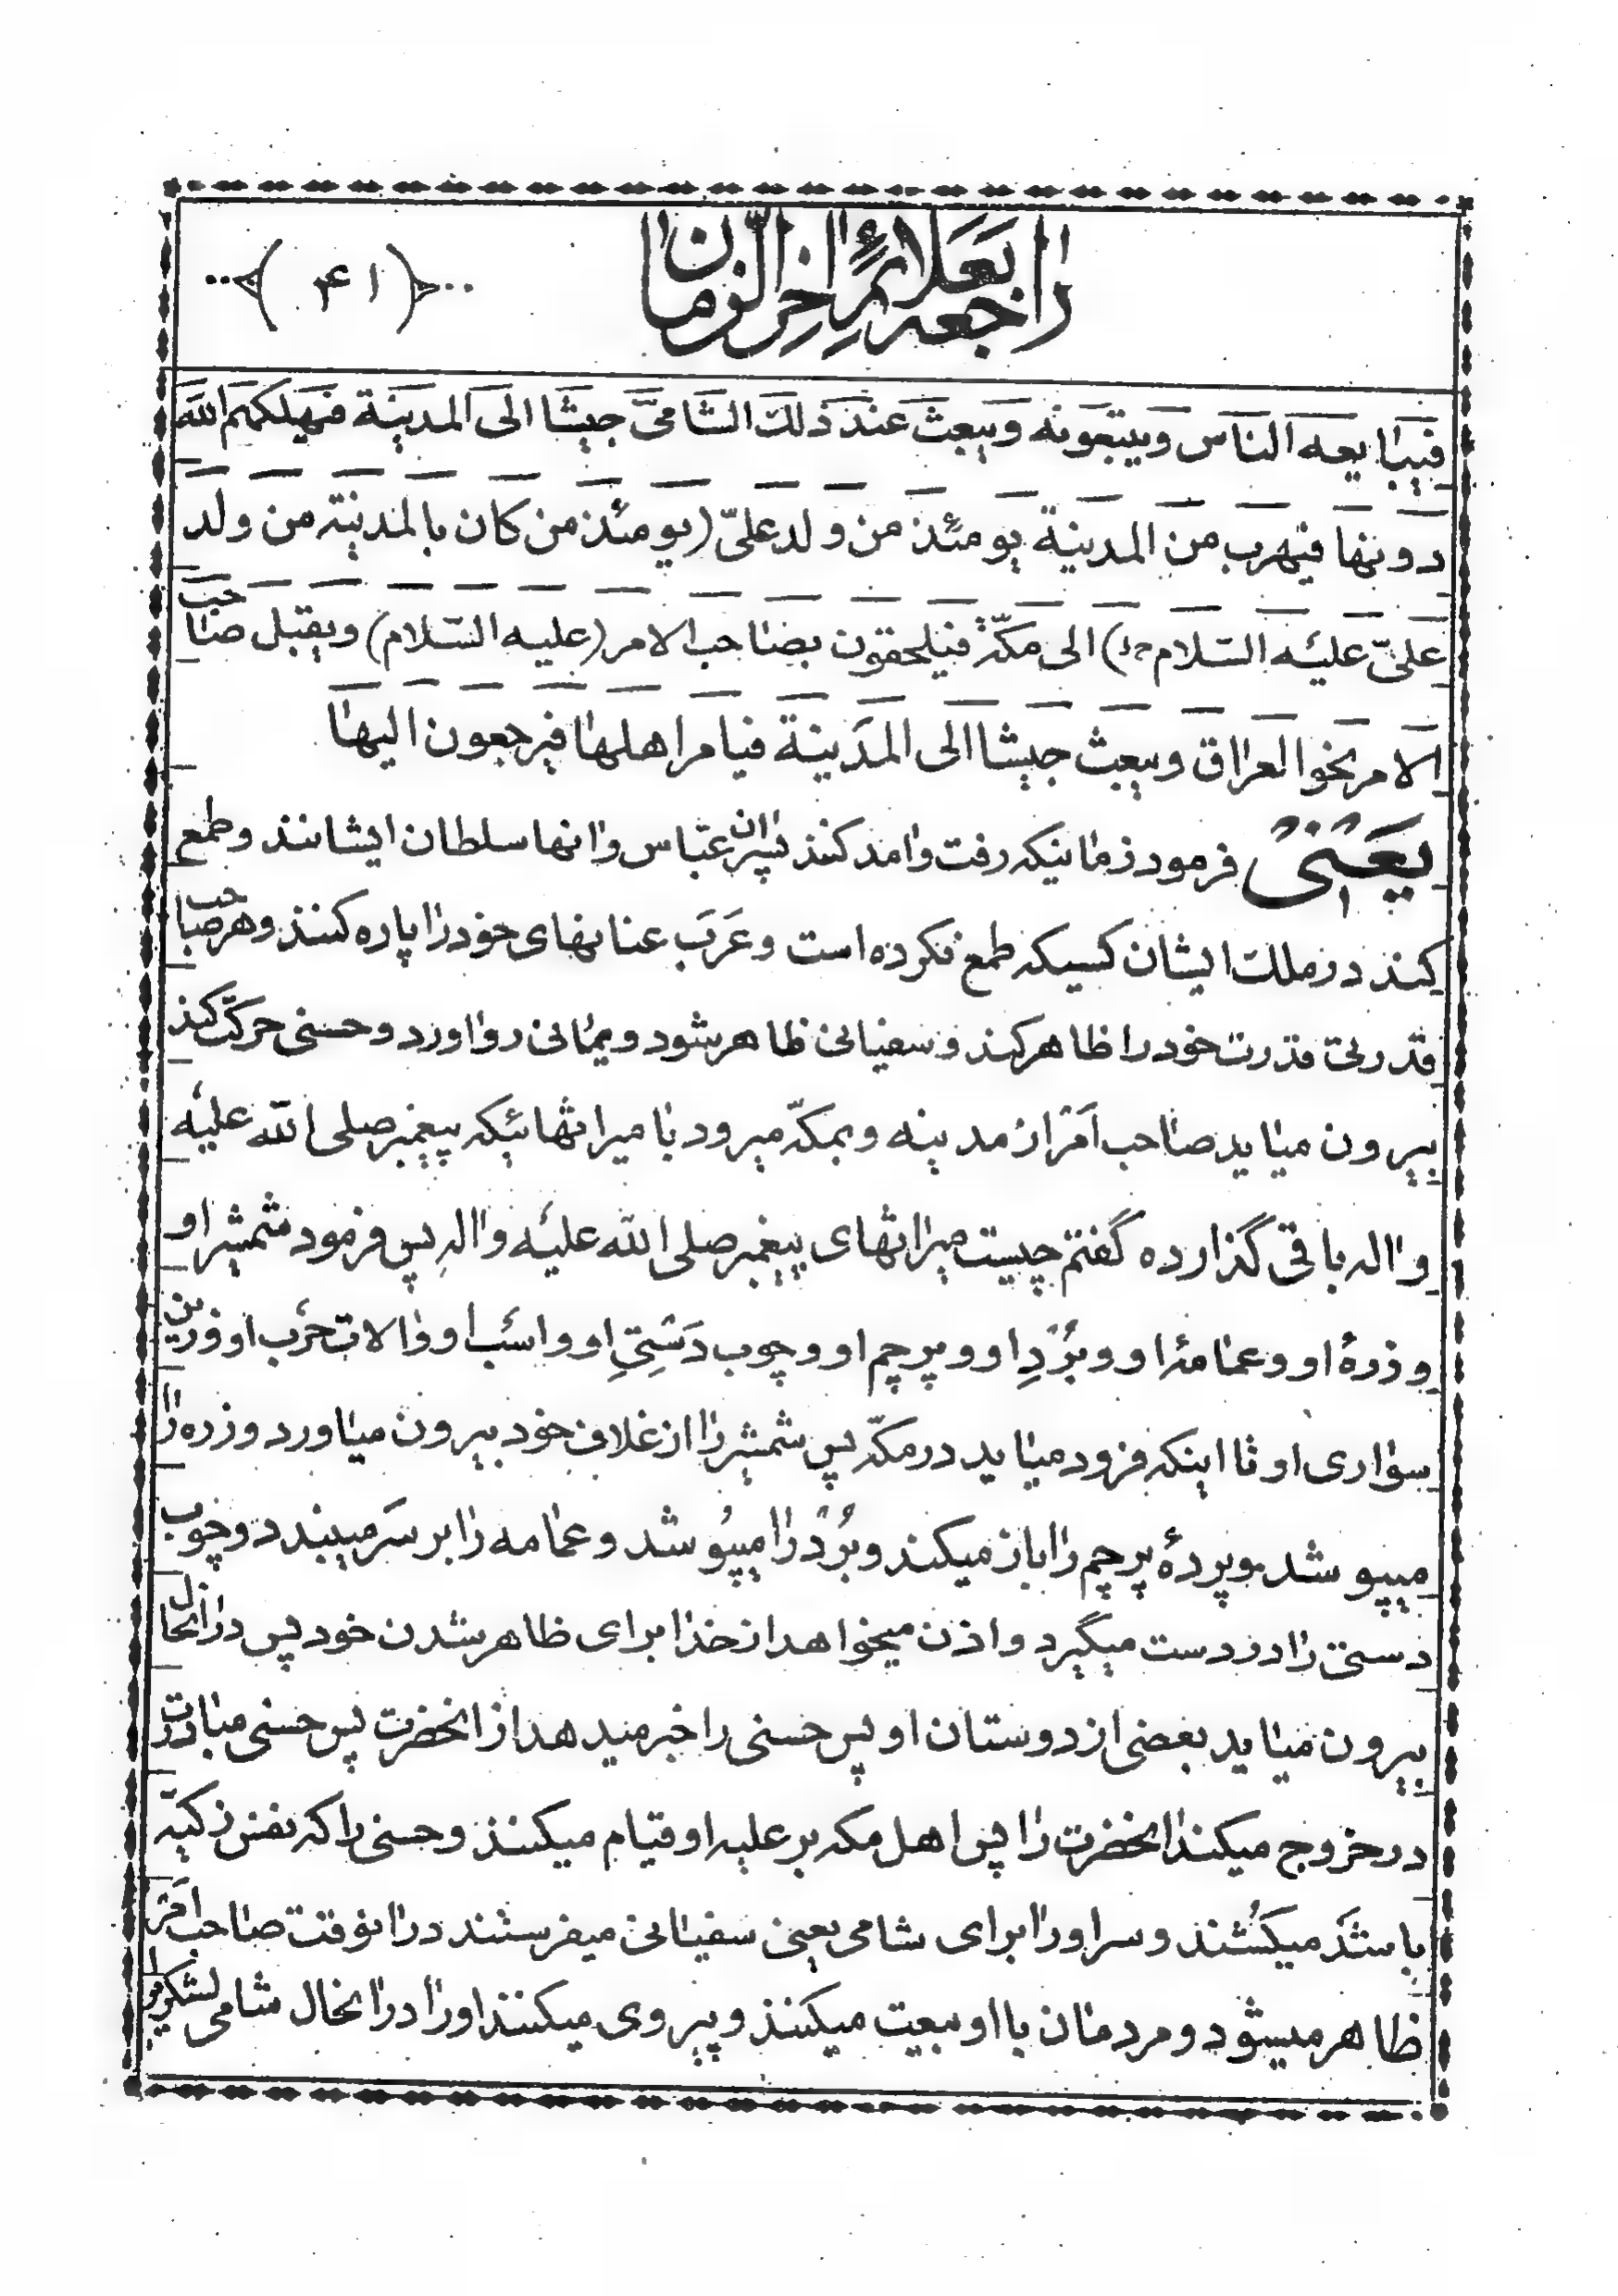 راجعه بعلائم اخر الزمان
(۴۱)
فیبایعه الناس ویتبعونه ویبعث عند ذلک الشامیّ جیشا الی المدینة فیهلکهم الله
دونها فیهرب من المدینة یومئذ من ولد علیّ (یومئذ من کان بالمدینة من ولد
علیّ علیه السّلام) الی مکّة فیلحقون بصاحب الامر (علیه السّلام) ویقبل صاحب
الامر نحو العراق ویبعث جیشا الی المدینة فیامر اهلها فیرجعون الیها
یعنی فرمود زمانیکه رفت وامد کنند پسران عبّاس وانها سلطان ایشانند وطمع
کند در ملک ایشان کسیکه طمع نکرده است وعَرَب عنانهای خود را پاره کنند وهر صاحب
قدرتی قدرت خود را ظاهر کند وسفیانی ظاهر شود ویمانی رو اورد وحسنی حرکت کند
بیرون میاید صاحب اَمر از مدینه وبمکّه میرود با میراثهائیکه پیغمبر صلی الله علیه
واله باقی گذارده گفتم چیست میراثهای پیغمبر صلی الله علیه والهِ پس فرمود شمشیر او
وزرهٔ او وعمامهٔ او وبُرْدِ او وپرچم او وچوب دَستیِ او واسب او والات حَرب او وزین
سواری او تا اینکه فرود میاید در مکّه پس شمشیر را از غلاف خود بیرون میاورد وزره را
میپوشد وپردهٔ پرچم را باز میکند وبُرْد را میپوشد وعمامه را بر سَر میبندد وچوب
دستی را در دست میگیرد واذن میخواهد از خدا برای ظاهر شدن خود پس در انحال
بیرون میاید بعضی از دوستان او پس حسنی را خبر میدهد از انحضرت پس حسنی مبادرت
در خروج میکند انحضرت را پس اهل مکه بر علیه او قیام میکنند وحسنی را که نفس زکیّه
باشد میکُشند وسر او را برای شامی یعنی سفیانی میفرستند در انوقت صاحب اَمر
ظاهر میشود ومردمان با او بیعت میکنند وپیروی میکنند او را در انحال شامی لشکر